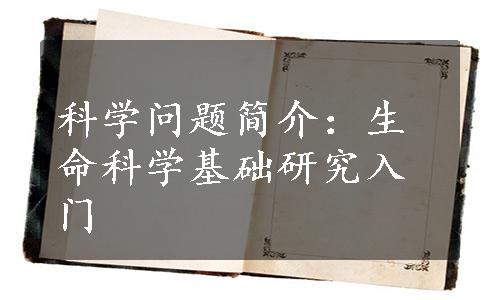 科学问题简介：生
命科学基础研究入
门